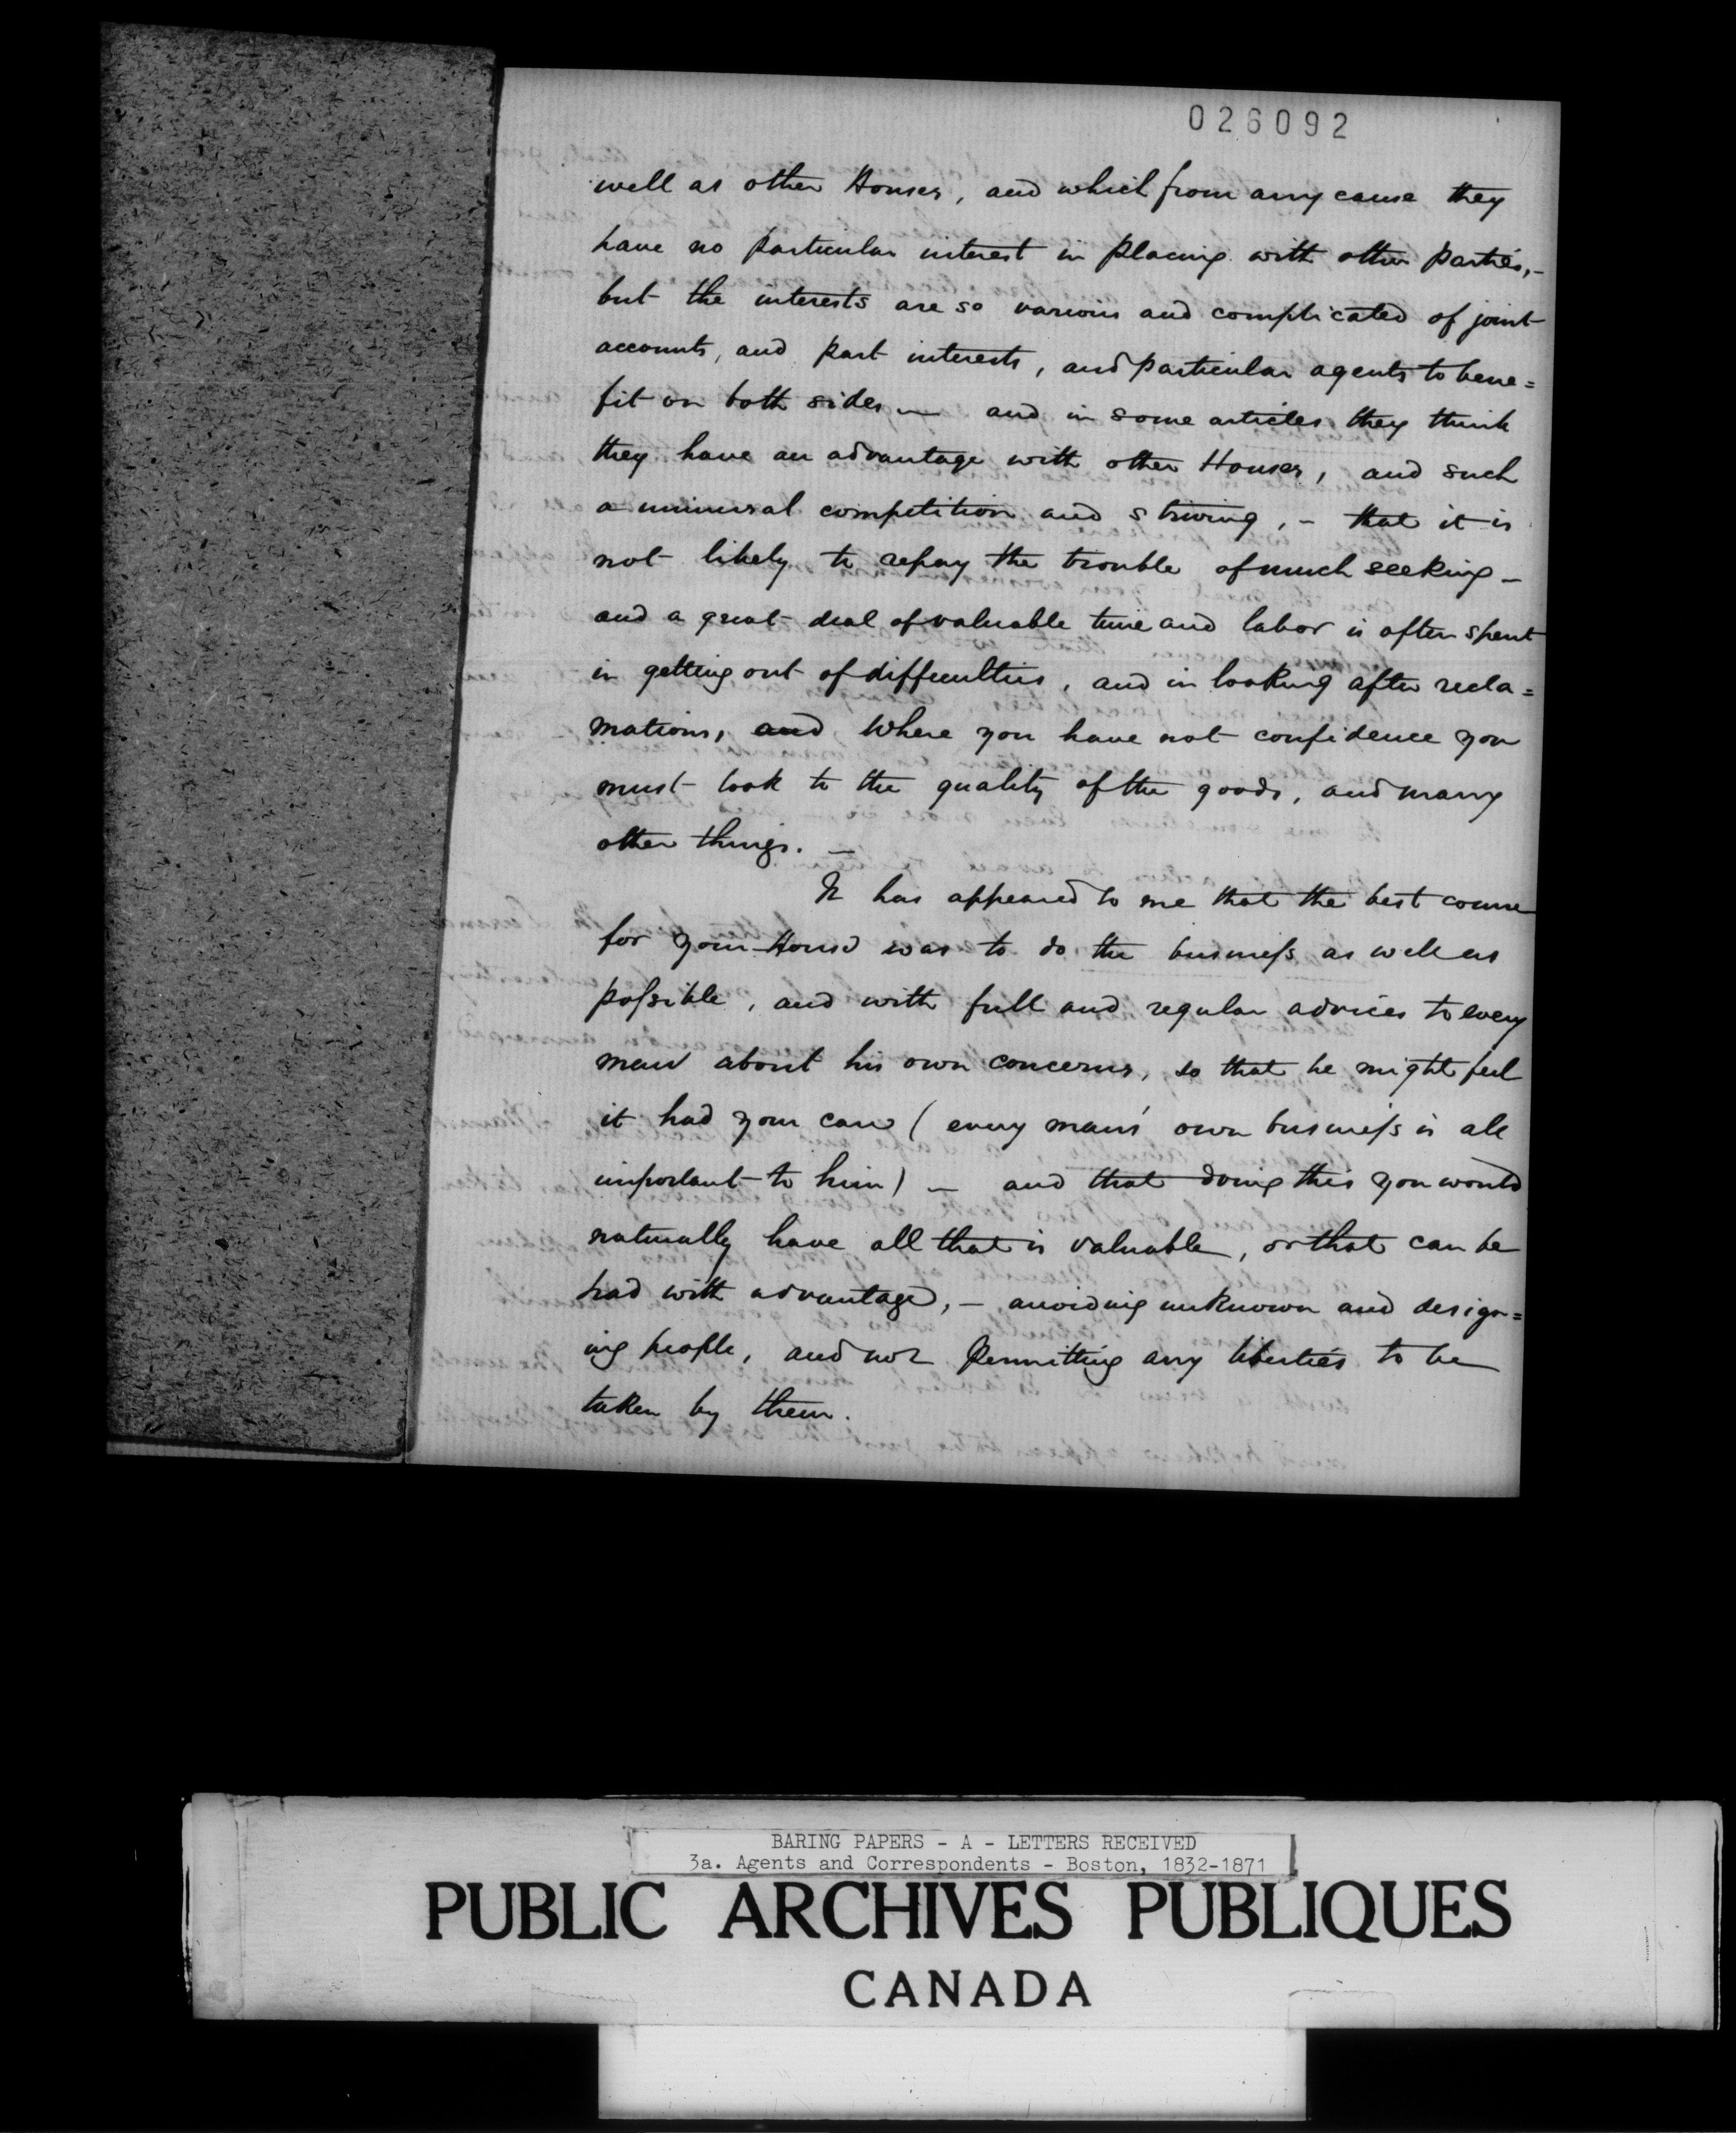 026092
well as other Houses, and which from any cause they
have no particular interest in placing with other parties,-
but the interests are so various and complicated of joint
accounts, and part interests, and particular agents to bene=
fit on both sides — and in some articles they think
they have an advantage with other Houses, and such
a universal competition and striving, - that it is
not likely to repay the trouble of much seeking -
and a great deal of valuable time and labor is often spent
in getting out of difficulties, and in looking after recla=
mations, and where you have not confidence you
must look to the quality of the goods, and many
other things. —
It has appeared to me that the best course
for your House was to do the businefs as well as
pofsible, and with full and regular advices to every
man about his own concerns, so that he might feel
it had your care (every man's own businefs is all
important to him) — and that doing this you would
naturally have all that is valuable, or that can be
had with advantage, - avoiding unknown and design=
ing people, and not permitting any liberties to be
taken by them.
BARING PAPERS - A - LETTERS RECEIVED
3a. Agents and Correspondents - Boston, 1832-1871
PUBLIC ARCHIVES PUBLIQUES
CANADA